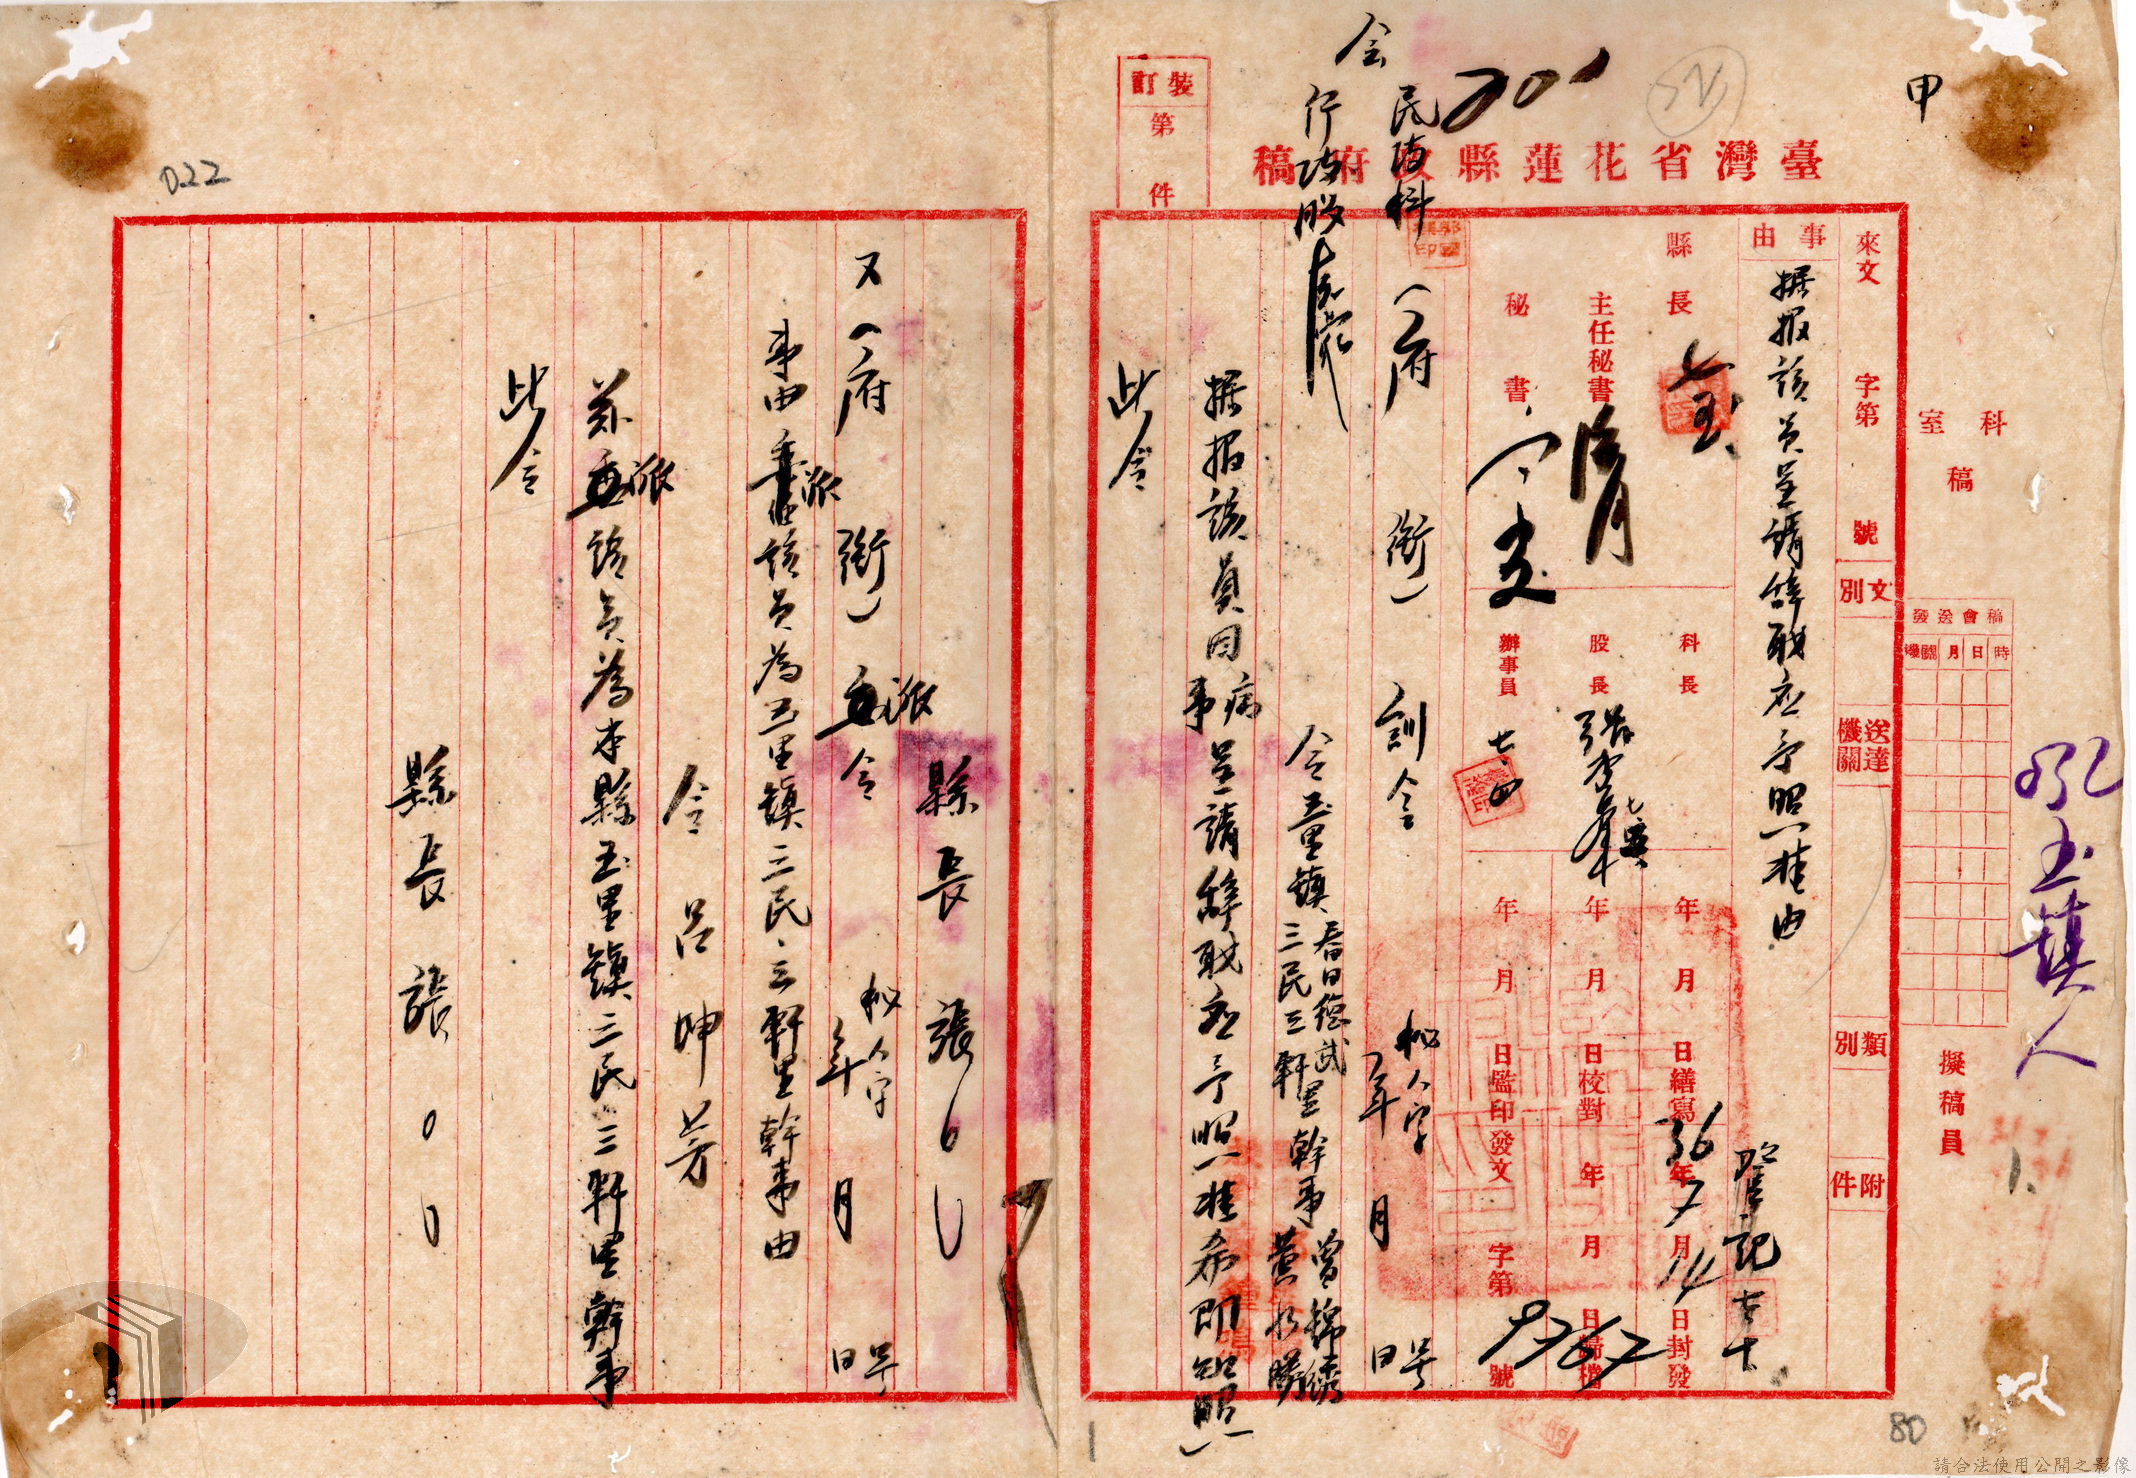 甲
臺灣省花蓮縣政府稿
裝訂
第
件
科室稿
擬稿員
稿會送發
時日月機關
來文 字第 號
文別
送達機關
類別
附件
事由
據报該员呈請辞职应予照准由
縣長
主任秘書
秘書
科長
股長
辦事員
七、四
年 月 日繕寫
年 月 日校對
年 月 日監印
36年7月14日封發
年 月 日歸檔
發文 字第 9767 號
登記
会
民政科
行政股
(府 銜) 訓令
秘人字 號
年 月 日
令玉里鎮 春日德武里 三民三軒里 幹事 曾錦綉 黄水勝
據报該員因病事呈請辞职应予照准希即知照
此令
縣長 張
又(府 銜) 派令
秘人字 號
年 月 日
事由 派該员為玉里鎮三民、三軒里幹事由
令 呂坤芳
茲派該員為本縣玉里鎮三民三軒里幹事
此令
縣長 張
022
玉鎮人
1.
80
請合法使用公開之影像